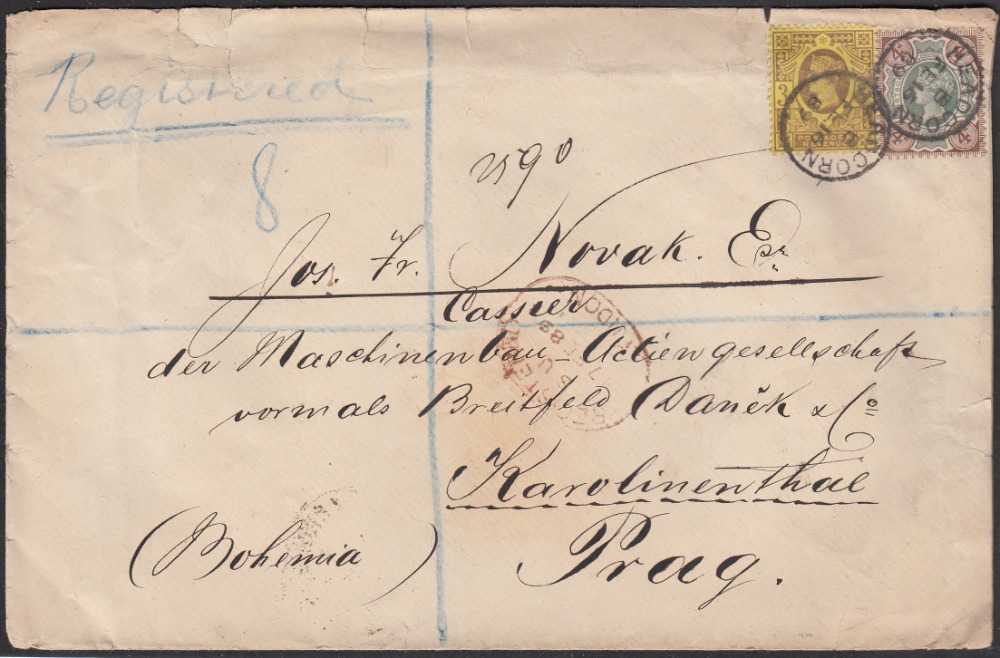 Registered
8
Jos. Fr. Novak. Esqr
Cassier
der Maschinenbau-Actiengesellschaft
vormals Breitfeld Daněk & Co
Karolinenthal
(Bohemia) Prag.
4 4
REGISTERED LONDON